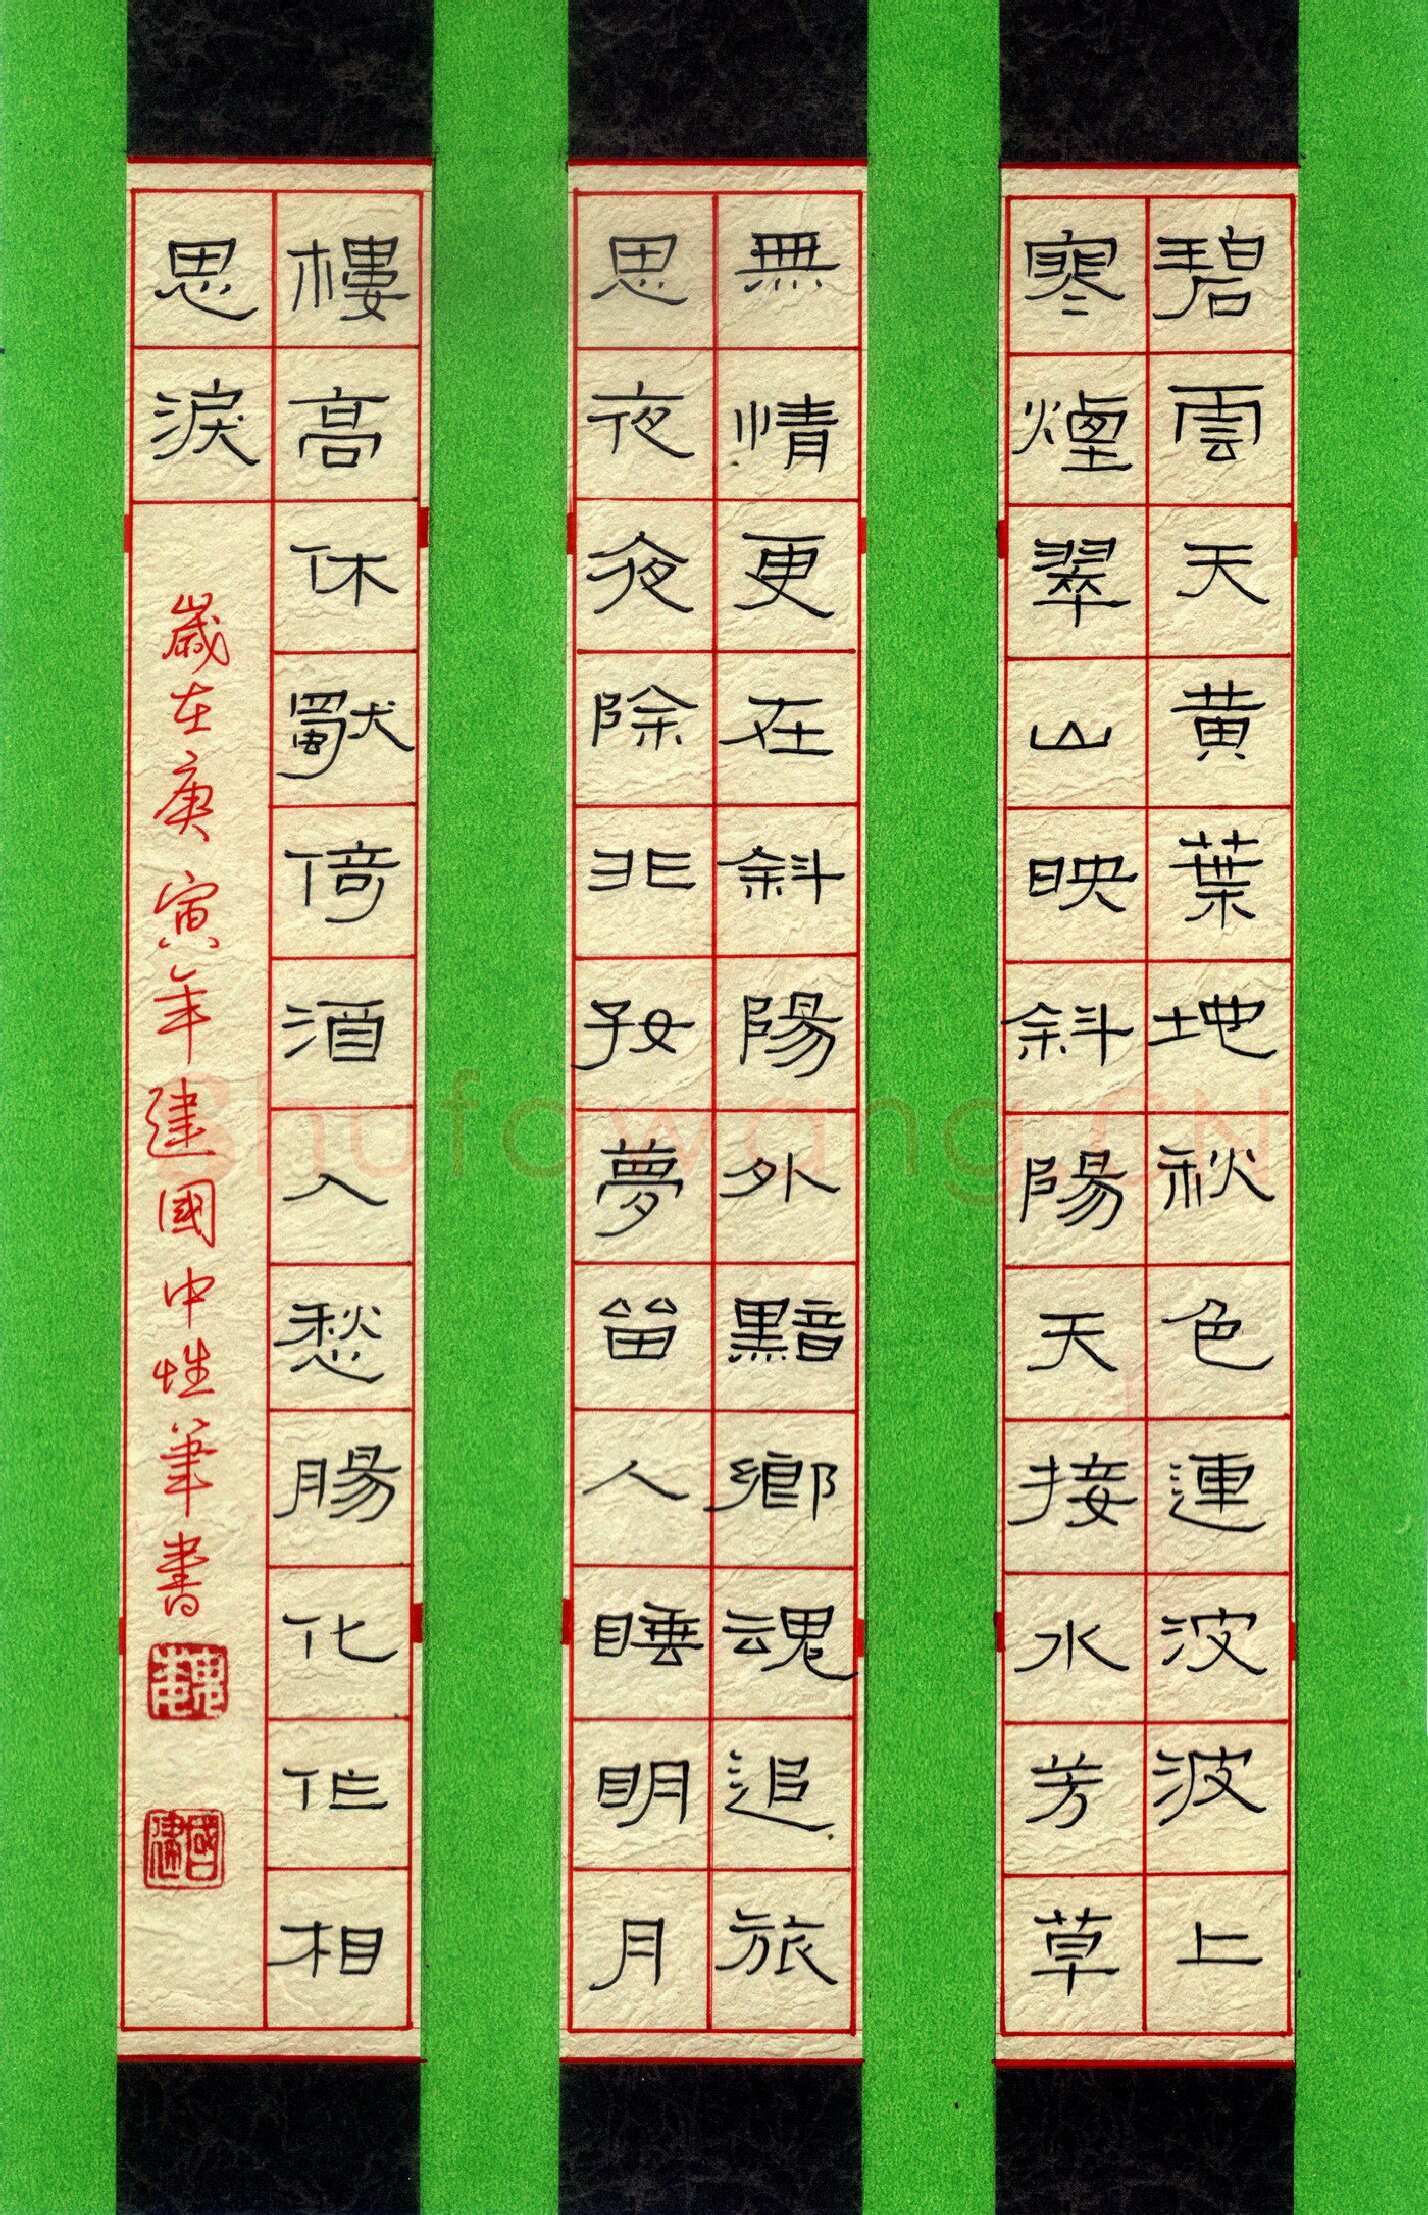 碧雲天黄葉地秋色連波波上
寒煙翠山映斜陽天接水芳草
無情更在斜陽外黯鄉魂追旅
思夜夜除非好夢留人睡明月
樓高休獨倚酒入愁腸化作相
思淚
歲在庚寅年建國中性筆書
魏
國建
Shufawang.CN